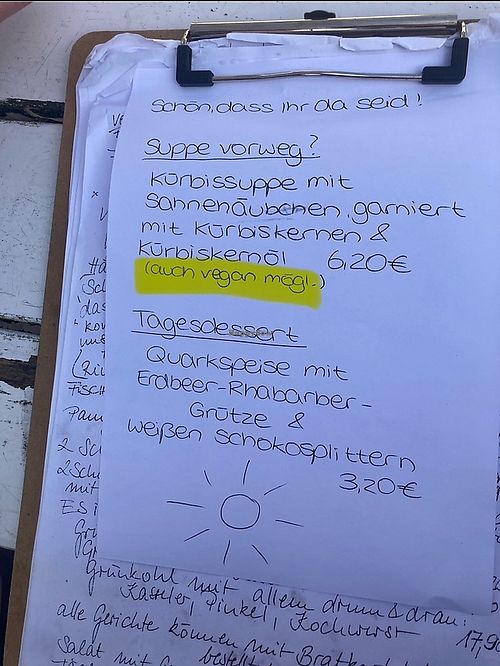 Schön, dass Ihr da seid!
Suppe vorweg?
Kürbissuppe mit
Sahnehäubchen, garniert
mit Kürbiskernen &
Kürbiskernöl 6,20€
(auch vegan mögl.)
Tagesdessert
Quarkspeise mit
Erdbeer-Rhabarber-
Grütze &
weißen Schokosplittern
3,20€
Fisch
2 Sch
2 Sch
mit
ES i
Grünkohl mit allem drum & dran:
Kassler, Pinkel, Kochwurst
alle Gerichte können mit Bratk
17,9
bestell
Salat mit